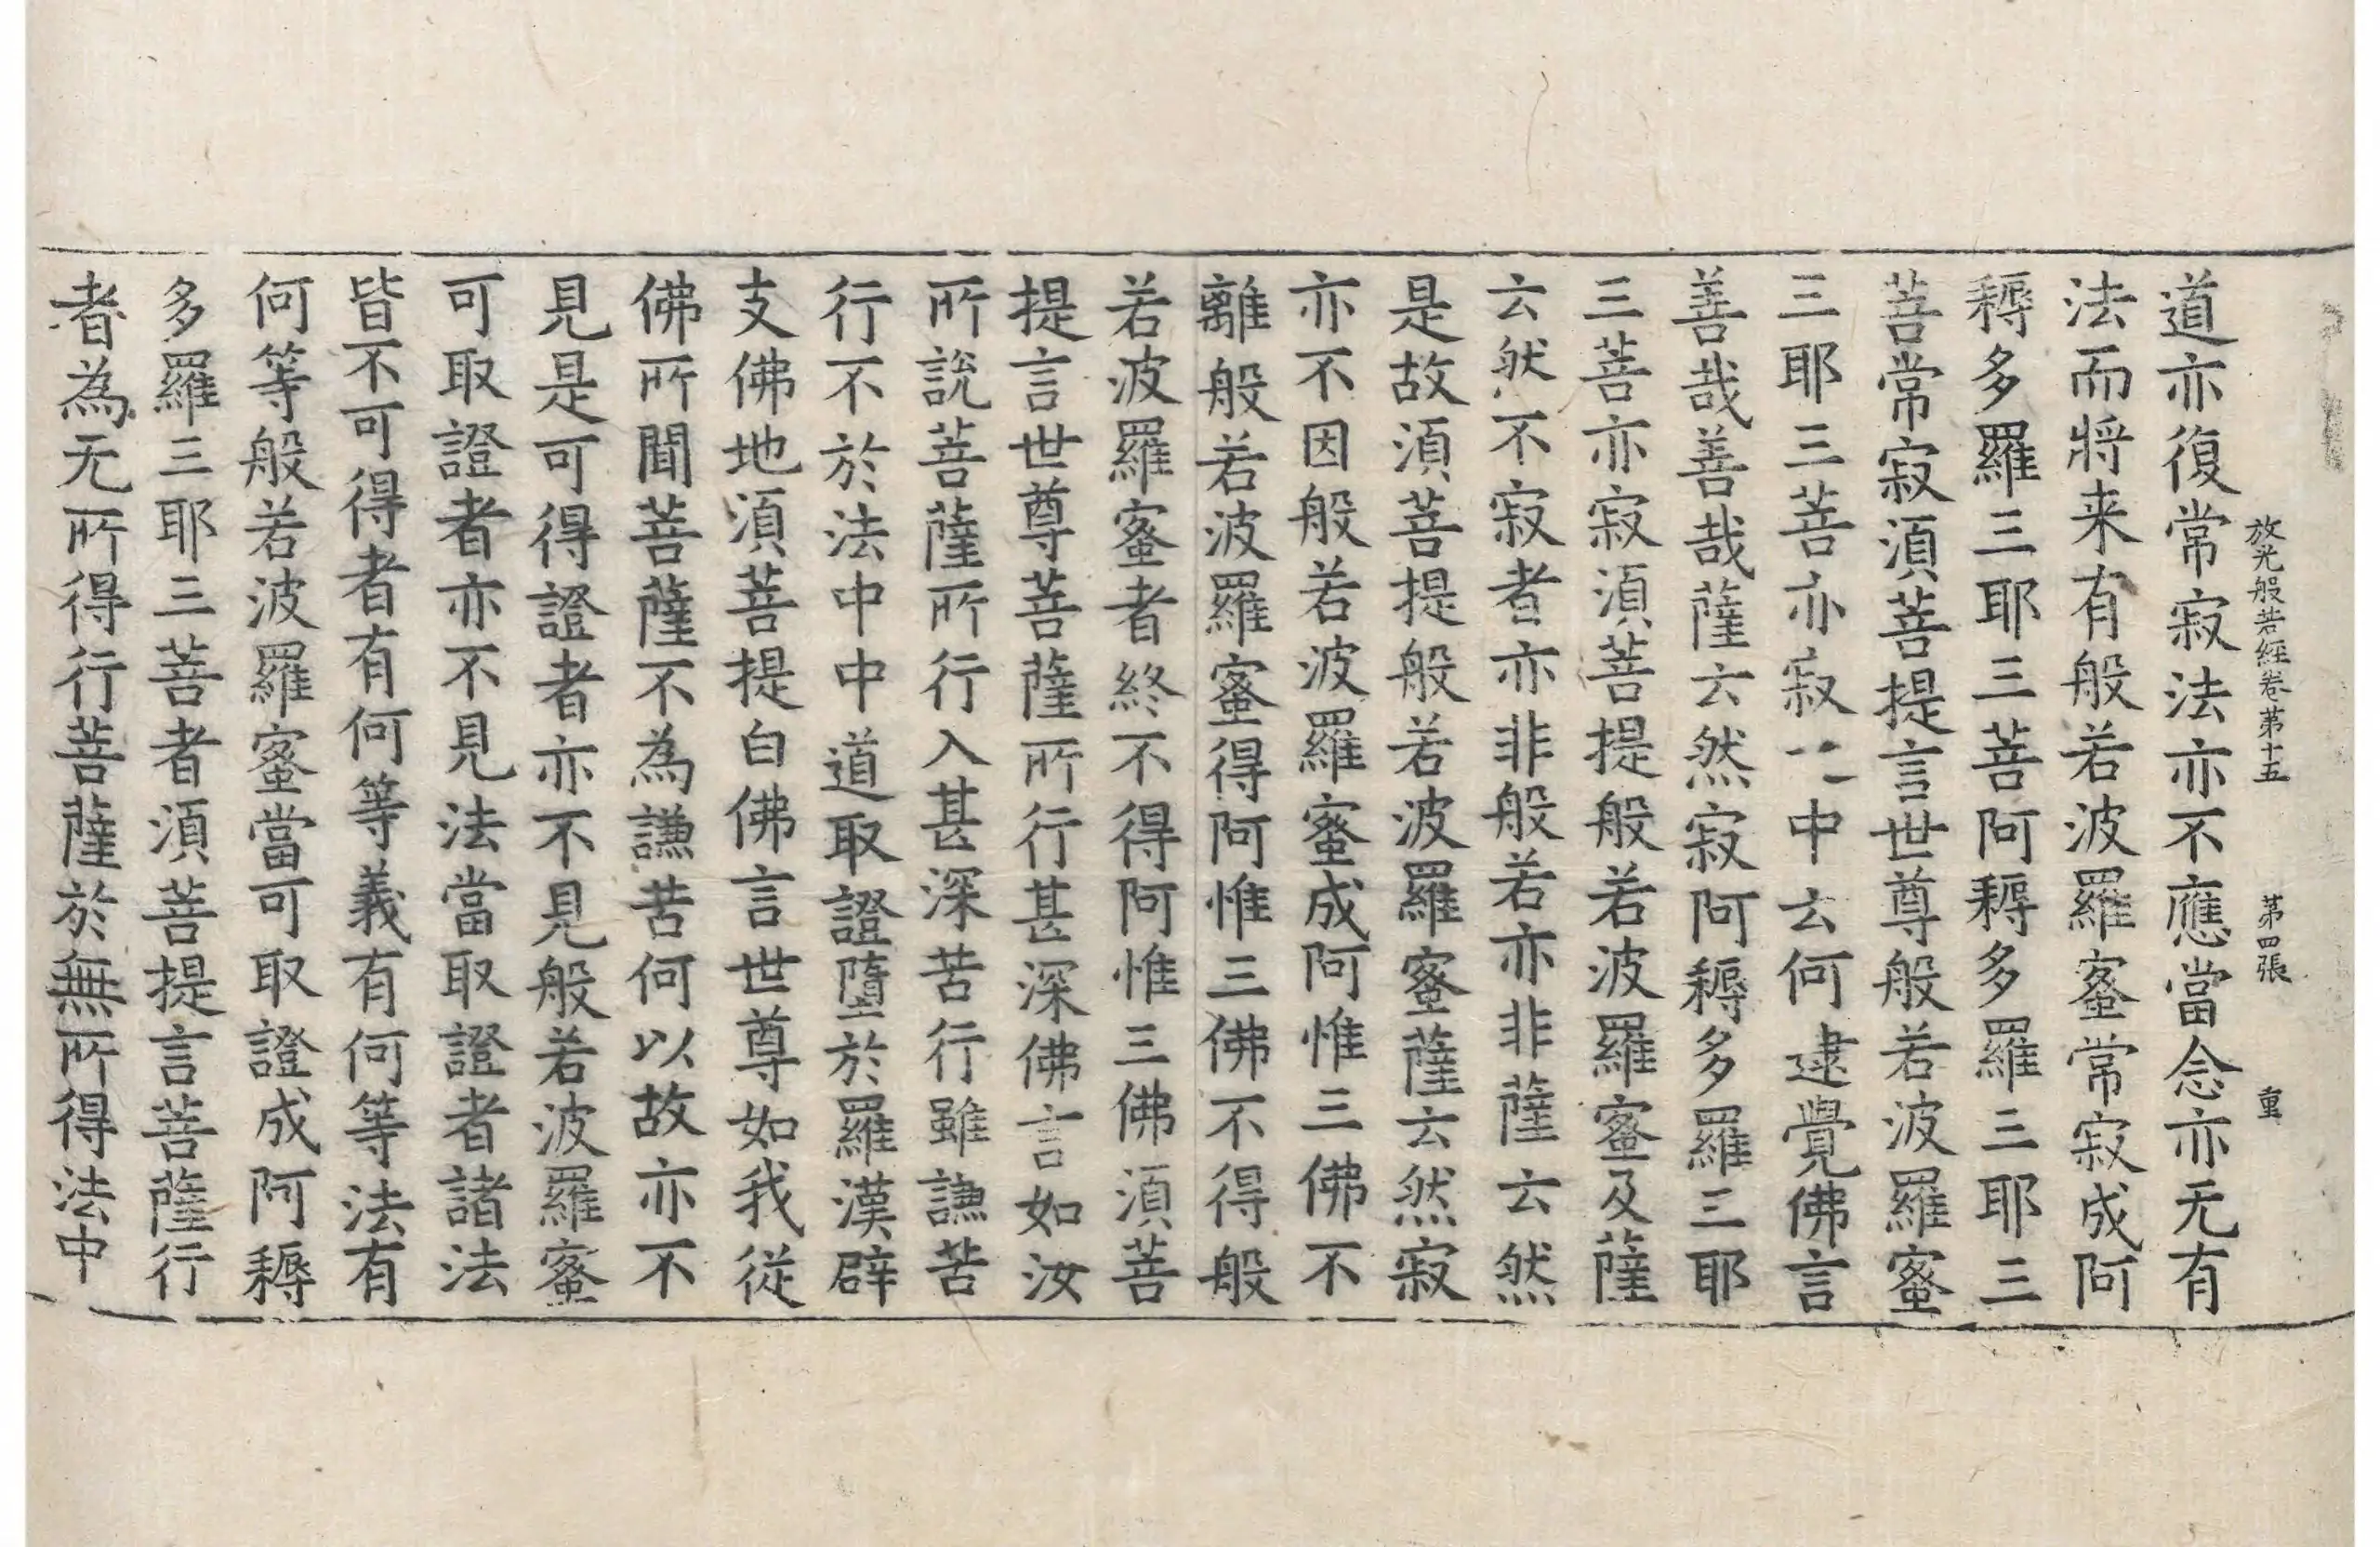 放光般若經卷第十五　第四張　重
道亦復常寂法亦不應當念亦无有
法而將来有般若波羅蜜常寂成阿
耨多羅三耶三菩阿耨多羅三耶三
菩常寂須菩提言世尊般若波羅蜜
三耶三菩亦寂寂中云何逮覺佛言
善哉善哉薩云然寂阿耨多羅三耶
三菩亦寂須菩提般若波羅蜜及薩
云然不寂者亦非般若亦非薩云然
是故須菩提般若波羅蜜薩云然寂
亦不因般若波羅蜜成阿惟三佛不
離般若波羅蜜得阿惟三佛不得般
若波羅蜜者終不得阿惟三佛須菩
提言世尊菩薩所行甚深佛言如汝
所說菩薩所行入甚深苦行雖謙苦
行不於法中中道取證墮於羅漢辟
支佛地須菩提白佛言世尊如我從
佛所聞菩薩不為謙苦何以故亦不
見是可得證者亦不見般若波羅蜜
可取證者亦不見法當取證者諸法
皆不可得者有何等義有何等法有
何等般若波羅蜜當可取證成阿耨
多羅三耶三菩者須菩提言菩薩行
者為无所得行菩薩於無所得法中